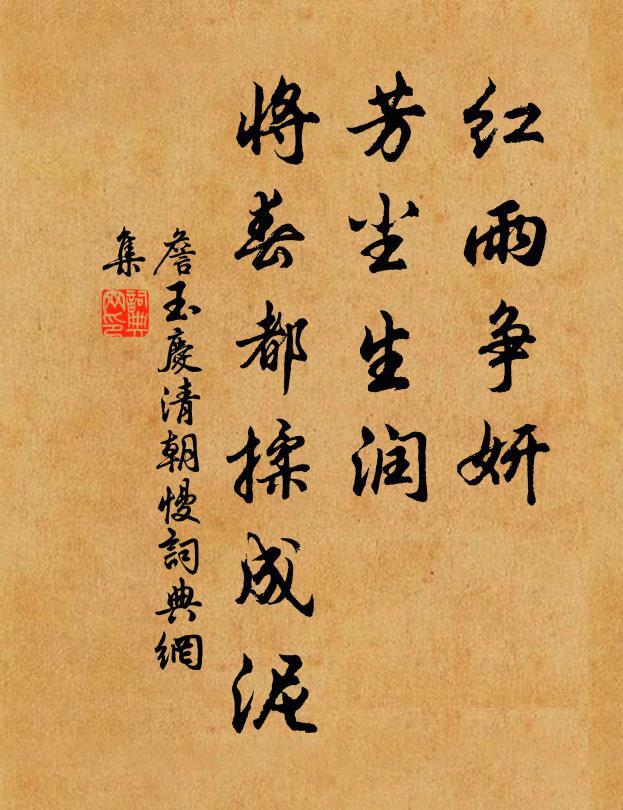 红雨争妍
芳尘生润
将春都揉成泥
詹玉慶清朝慢詞典網
集
詞典網印